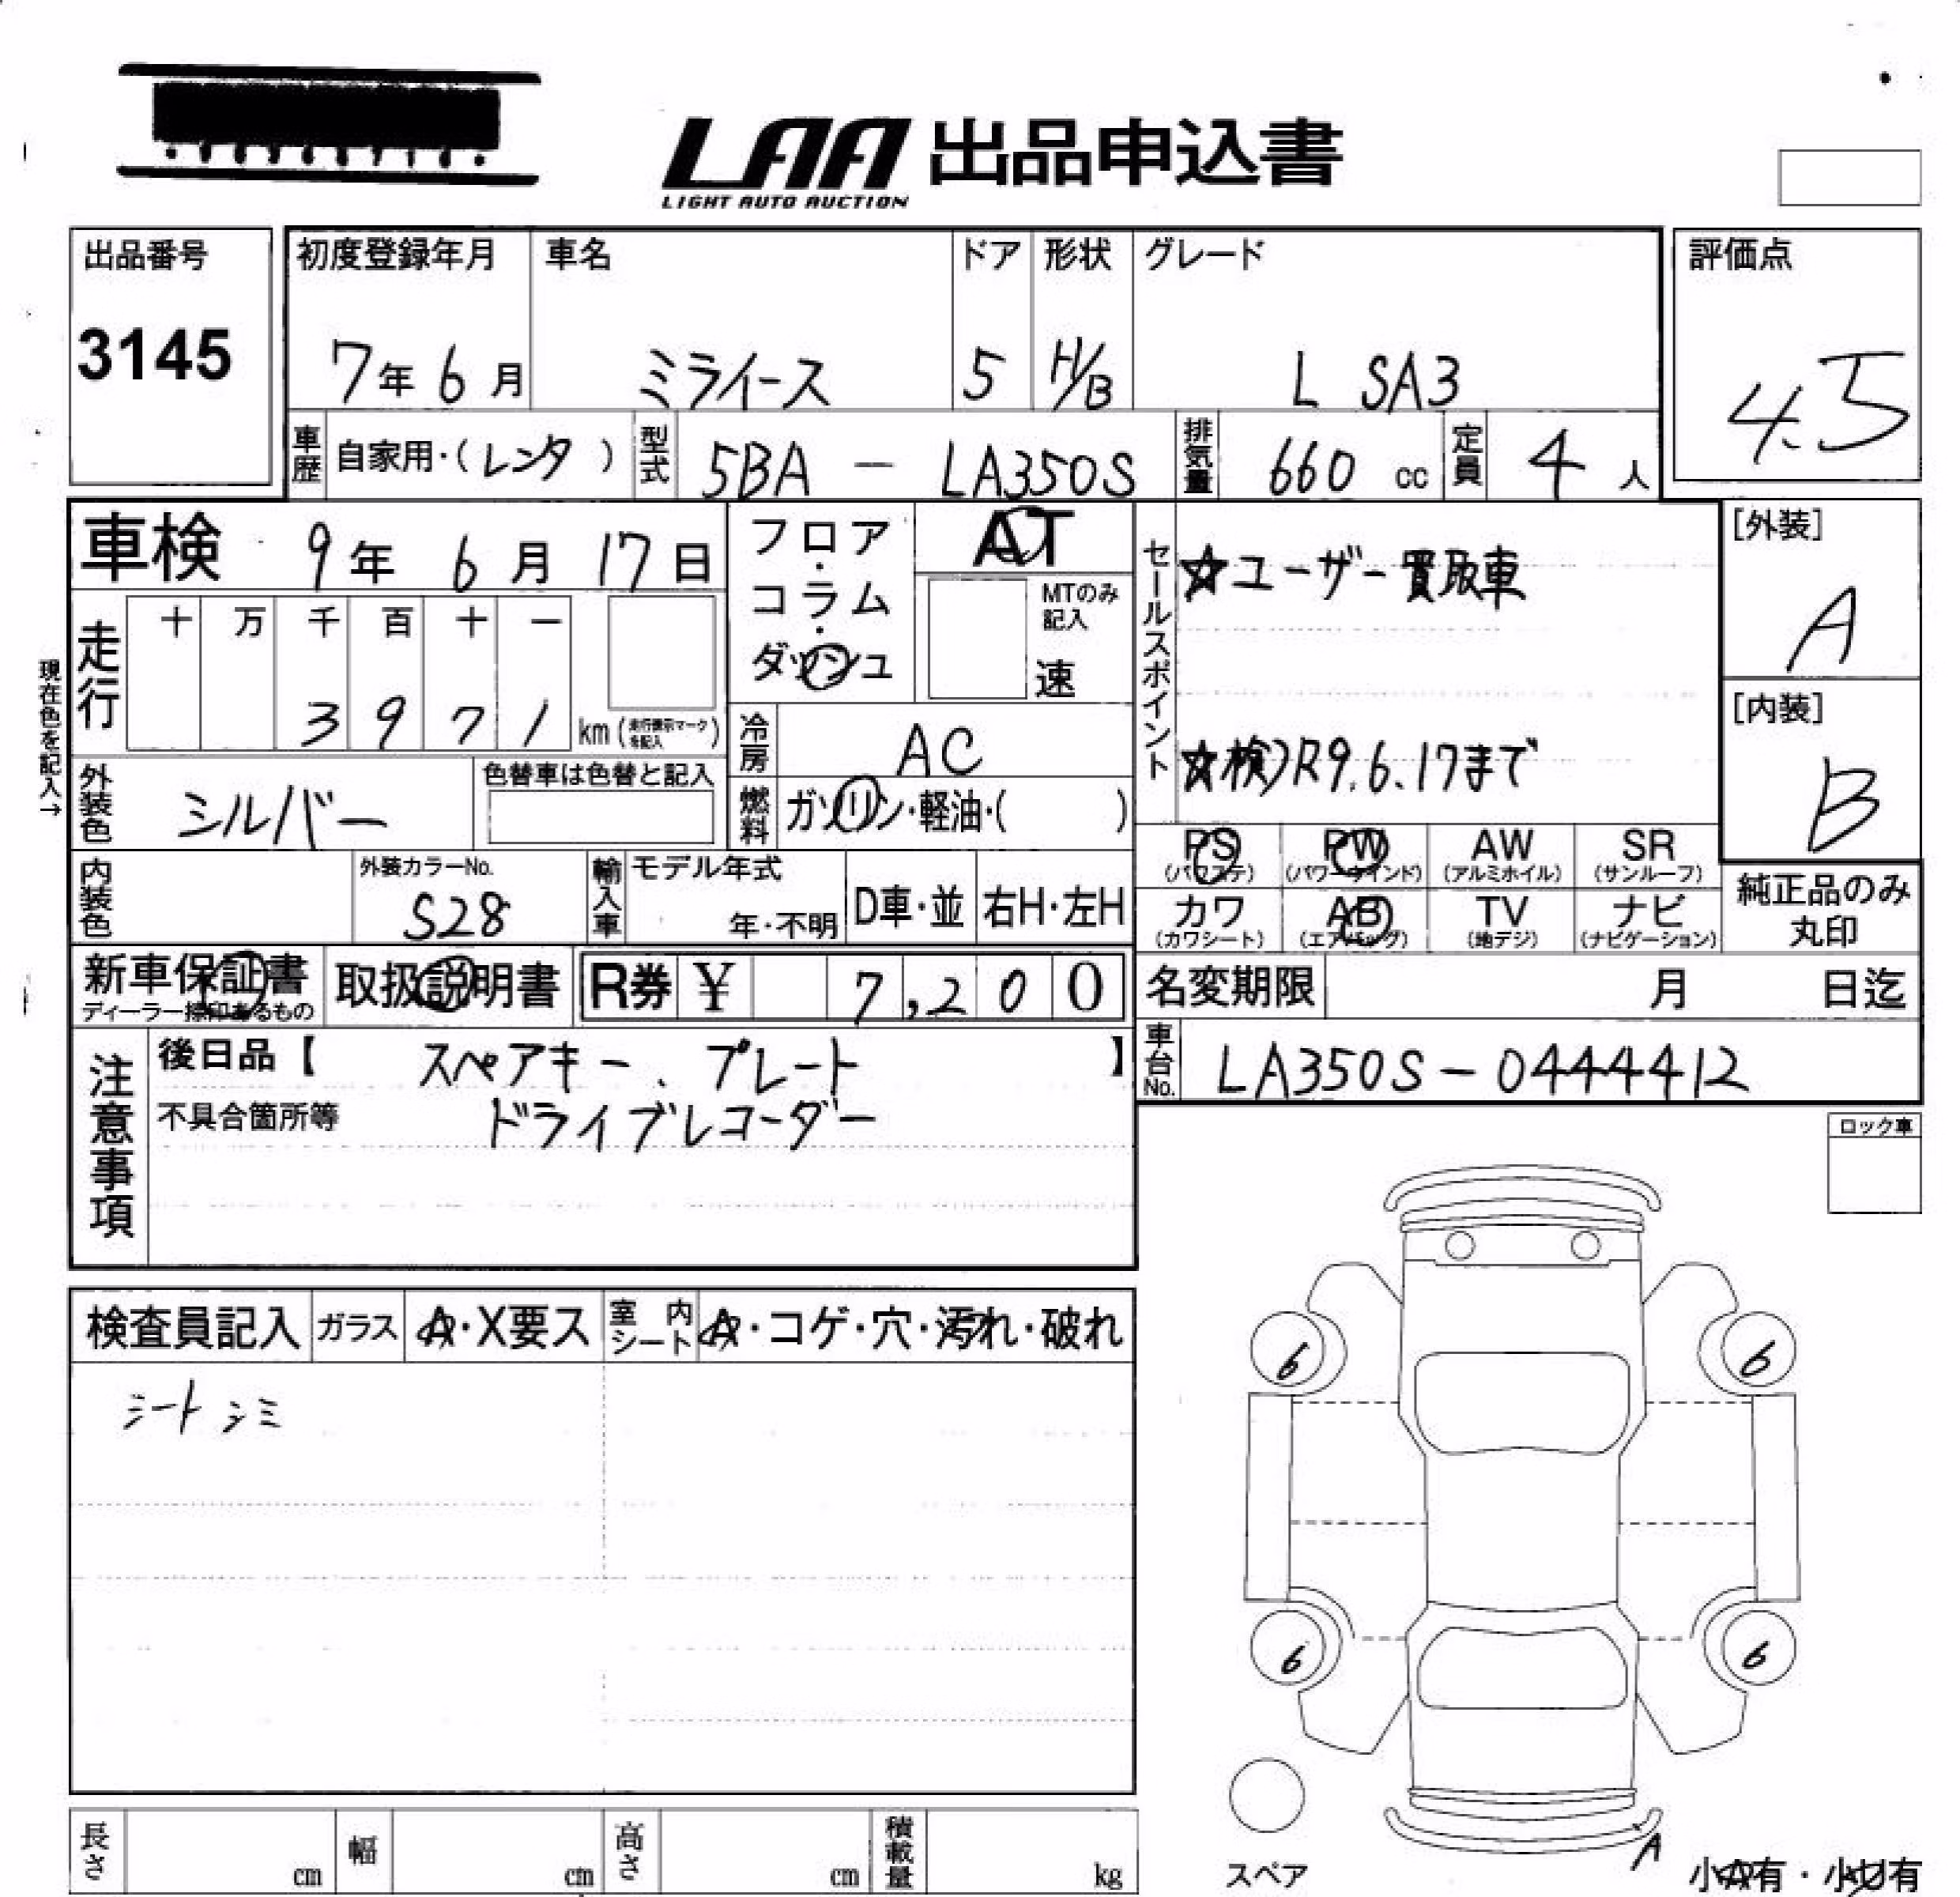 LAA 出品申込書
LIGHT AUTO AUCTION
出品番号
3145
初度登録年月
7年 6月
車名
ミライース
ドア
5
形状
H/B
グレード
L SA3
評価点
4.5
車歴 自家用・(レンタ)
型式 5BA - LA350S
排気量 660 cc
定員 4 人
車検 9年 6月 17日
フロア・コラム・ダッシュ
AT
MTのみ記入
速
セールスポイント
☆ユーザー買取車
☆検)R9.6.17まで
[外装]
A
[内装]
B
現在色を記入→
走行
十 万 千 百 十 一
3 9 7 1 km (走行表示マークを記入)
冷房 AC
外装色 シルバー
色替車は色替と記入
燃料 ガソリン・軽油・( )
PS (パワステ)
PW (パワーウインド)
AW (アルミホイル)
SR (サンルーフ)
カワ (カワシート)
AB (エアバッグ)
TV (地デジ)
ナビ (ナビゲーション)
純正品のみ丸印
内装色
外装カラーNo.
S28
輸入車
モデル年式
年・不明
D車・並
右H・左H
新車保証書
ディーラー捺印あるもの
取扱説明書
R券 ¥ 7,200
名変期限 月 日迄
車台No. LA350S-0444412
注意事項
後日品【 スペアキー、プレート 】
不具合箇所等 ドライブレコーダー
ロック車
検査員記入
ガラス A・X要ス
室内シート A・コゲ・穴・汚れ・破れ
シート シミ
6
6
6
6
A
スペア
小A有・小U有
長さ cm
幅 cm
高さ cm
積載量 kg